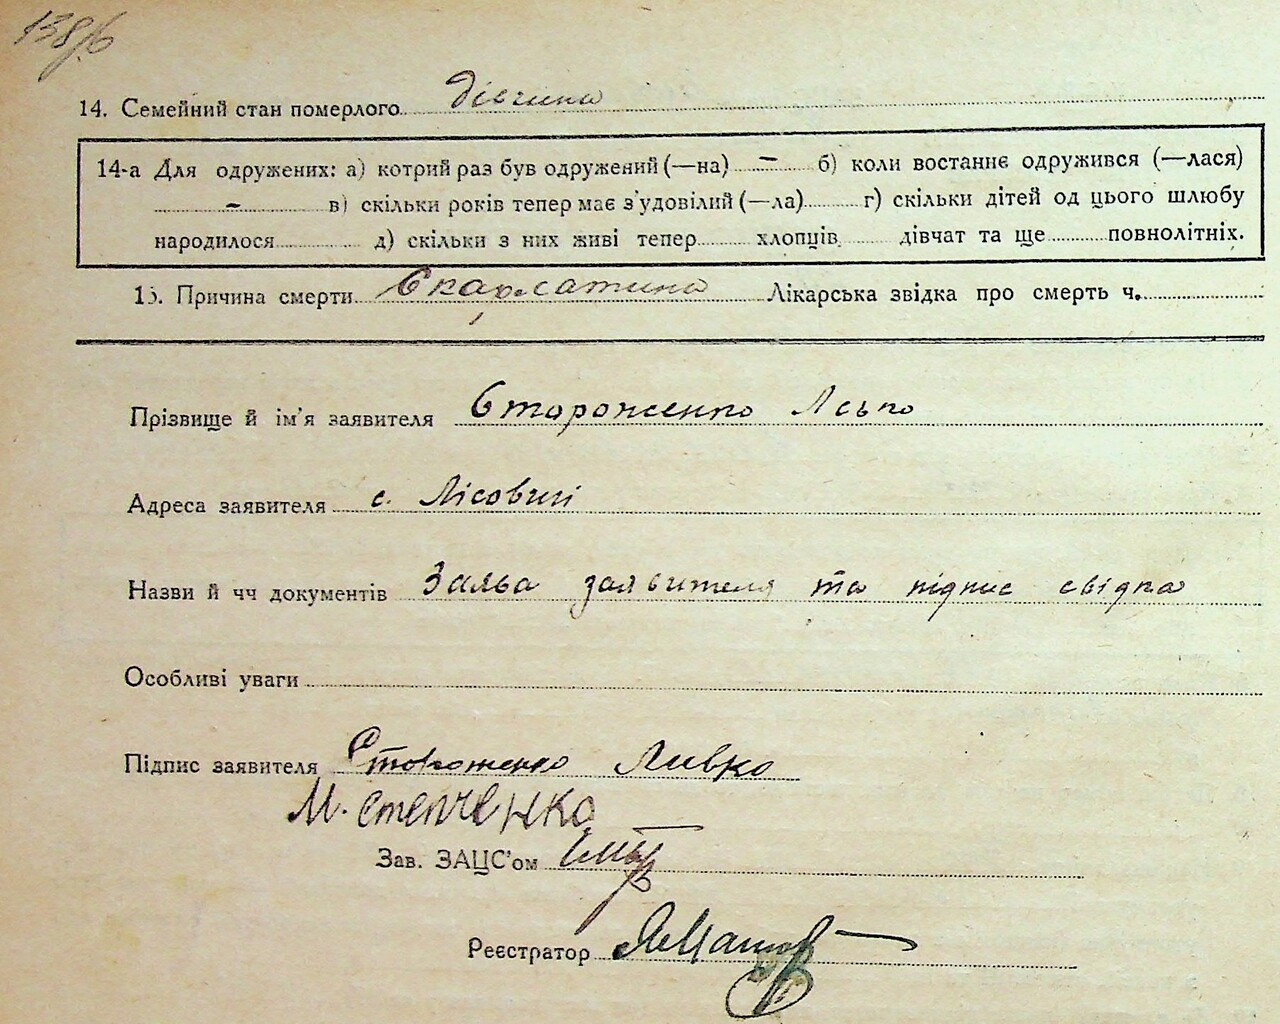 138/б
14. Семейний стан померлого дівчина
14-а Для одружених: а) котрий раз був одружений (—на) – б) коли востаннє одружився (—лася)
– в) скільки років тепер має з'удовілий (—ла) г) скільки дітей од цього шлюбу
народилося д) скільки з них живі тепер хлопців дівчат та ще повнолітніх.
15. Причина смерти Скарлатина Лікарська звідка про смерть ч.
Прізвище й ім'я заявителя Стороженко
Адреса заявителя с. Лісовичі
Назви й чч документів Заява заявителя та підпис свідка
Особливі уваги
Підпис заявителя Стороженко Левко
М. степченко
Зав. ЗАЦС'ом
Реєстратор